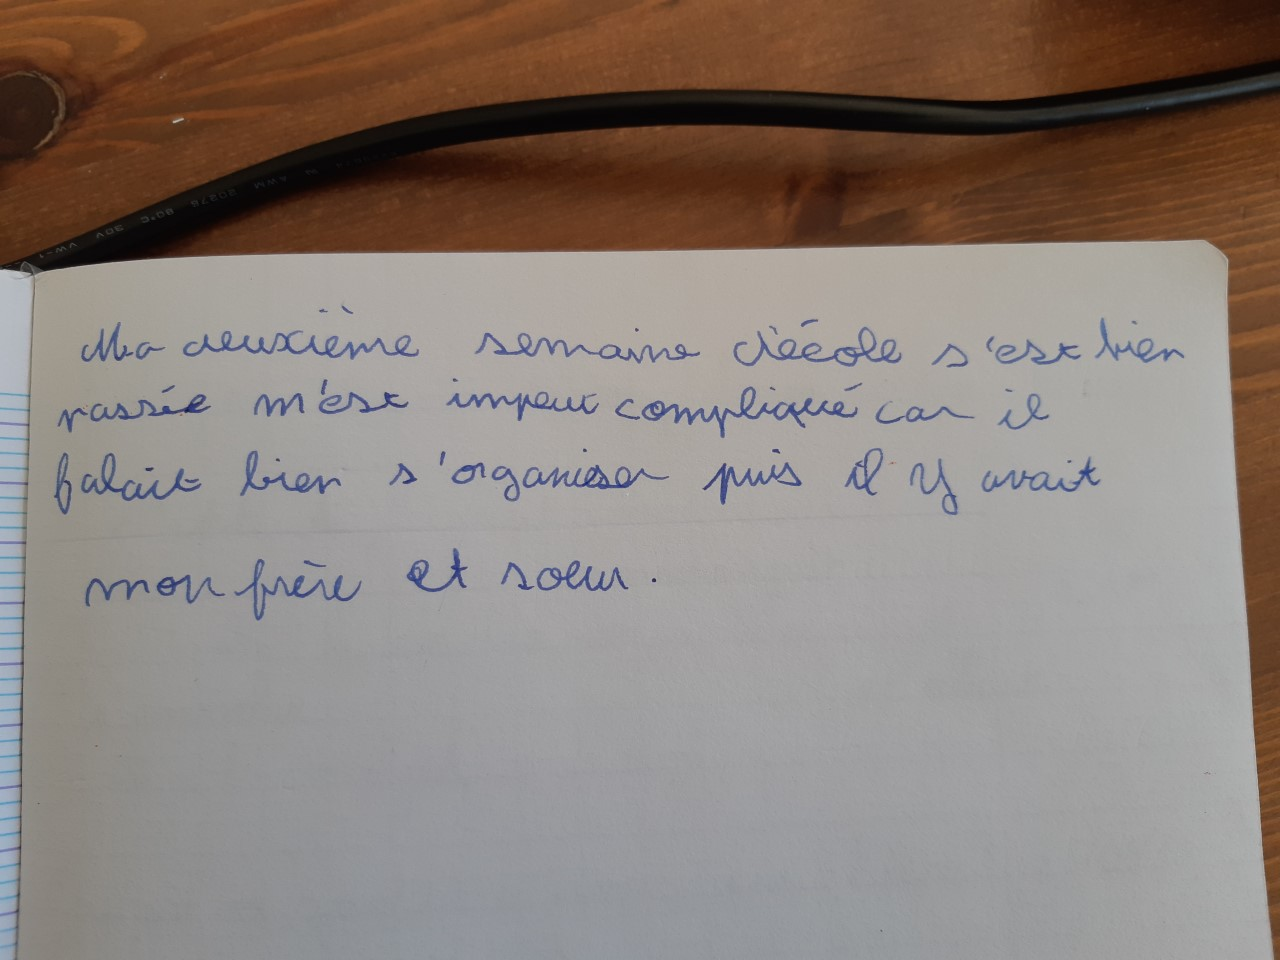 VW-1 30V 80°C 20276 AWM
Ma deuxième semaine d'école s'est bien
passée m'est impeut compliqué car il
falait bien s'organiser puis il y avait
mon frère et soeur.